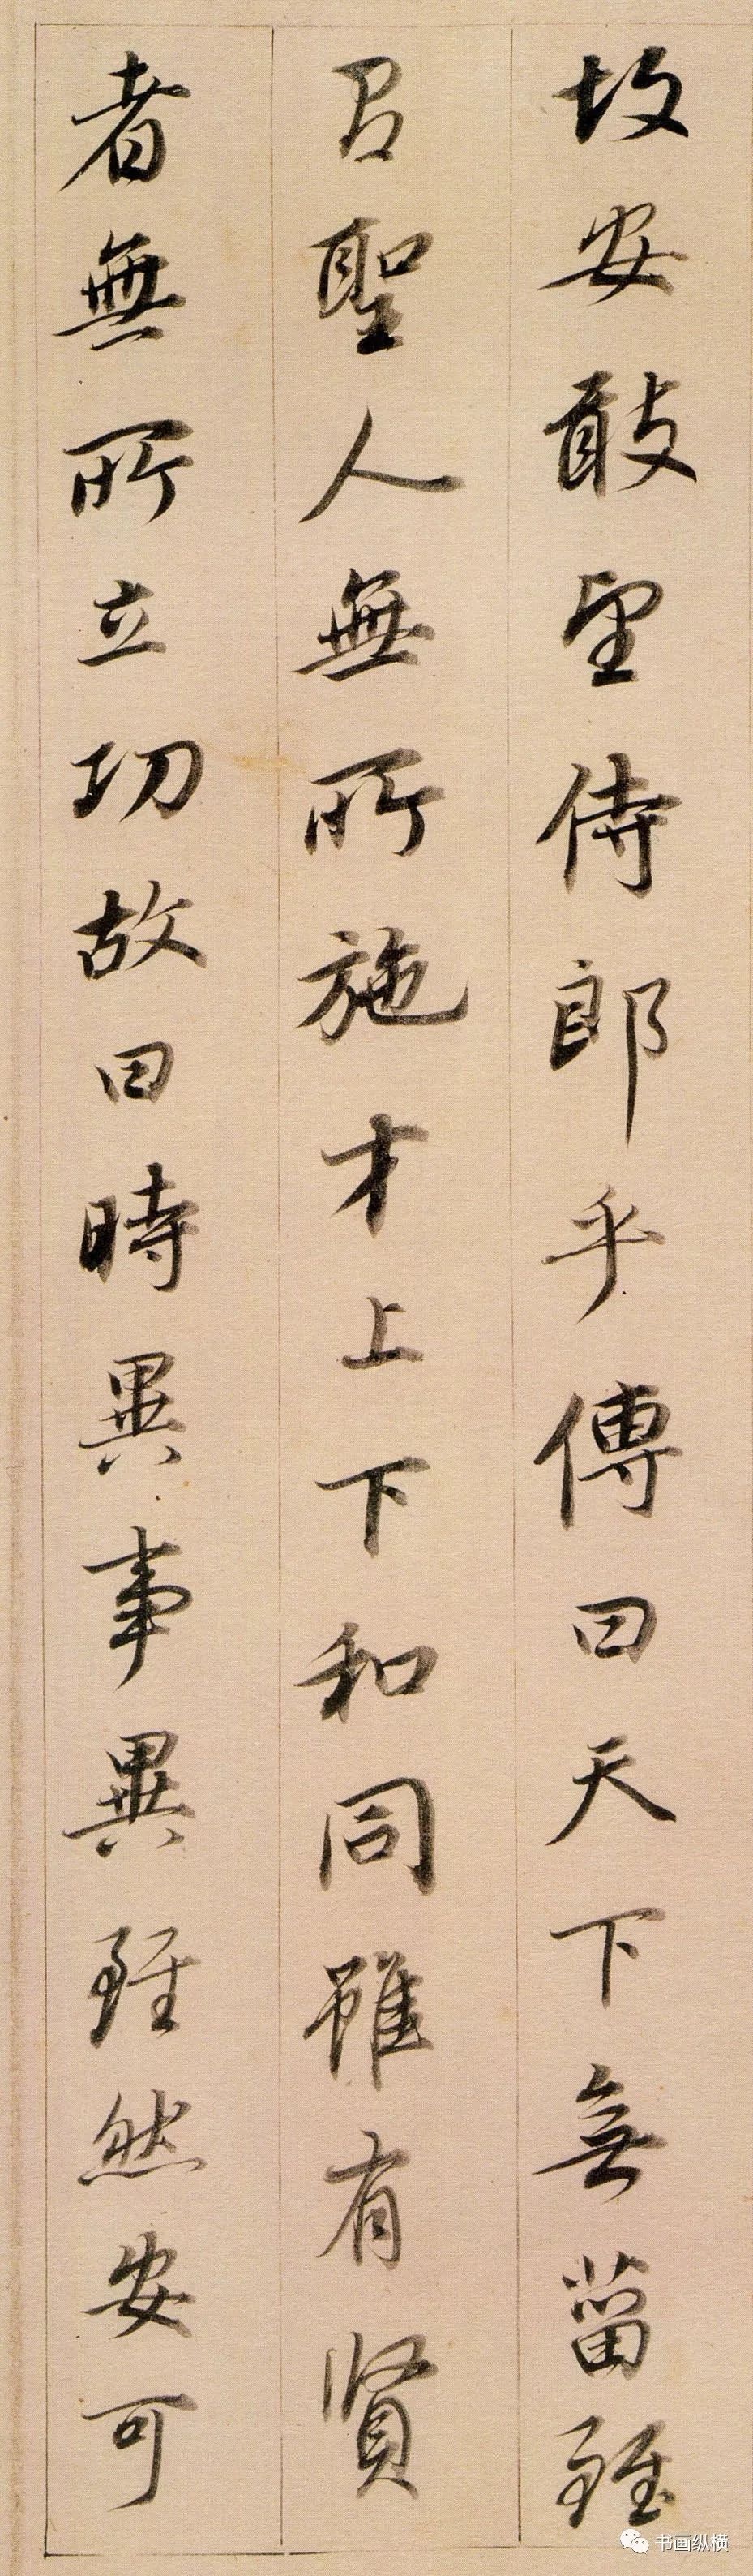 故安敢望侍郎乎傳曰天下無菑雖
有聖人無所施才上下和同雖有賢
者無所立功故曰時異事異雖然安可
书画纵横